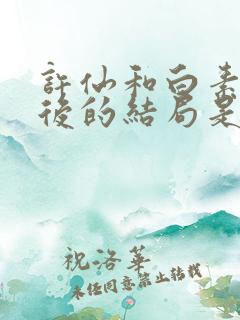 許仙和白素
後的結局是
祝洛華
未經同意禁止轉載